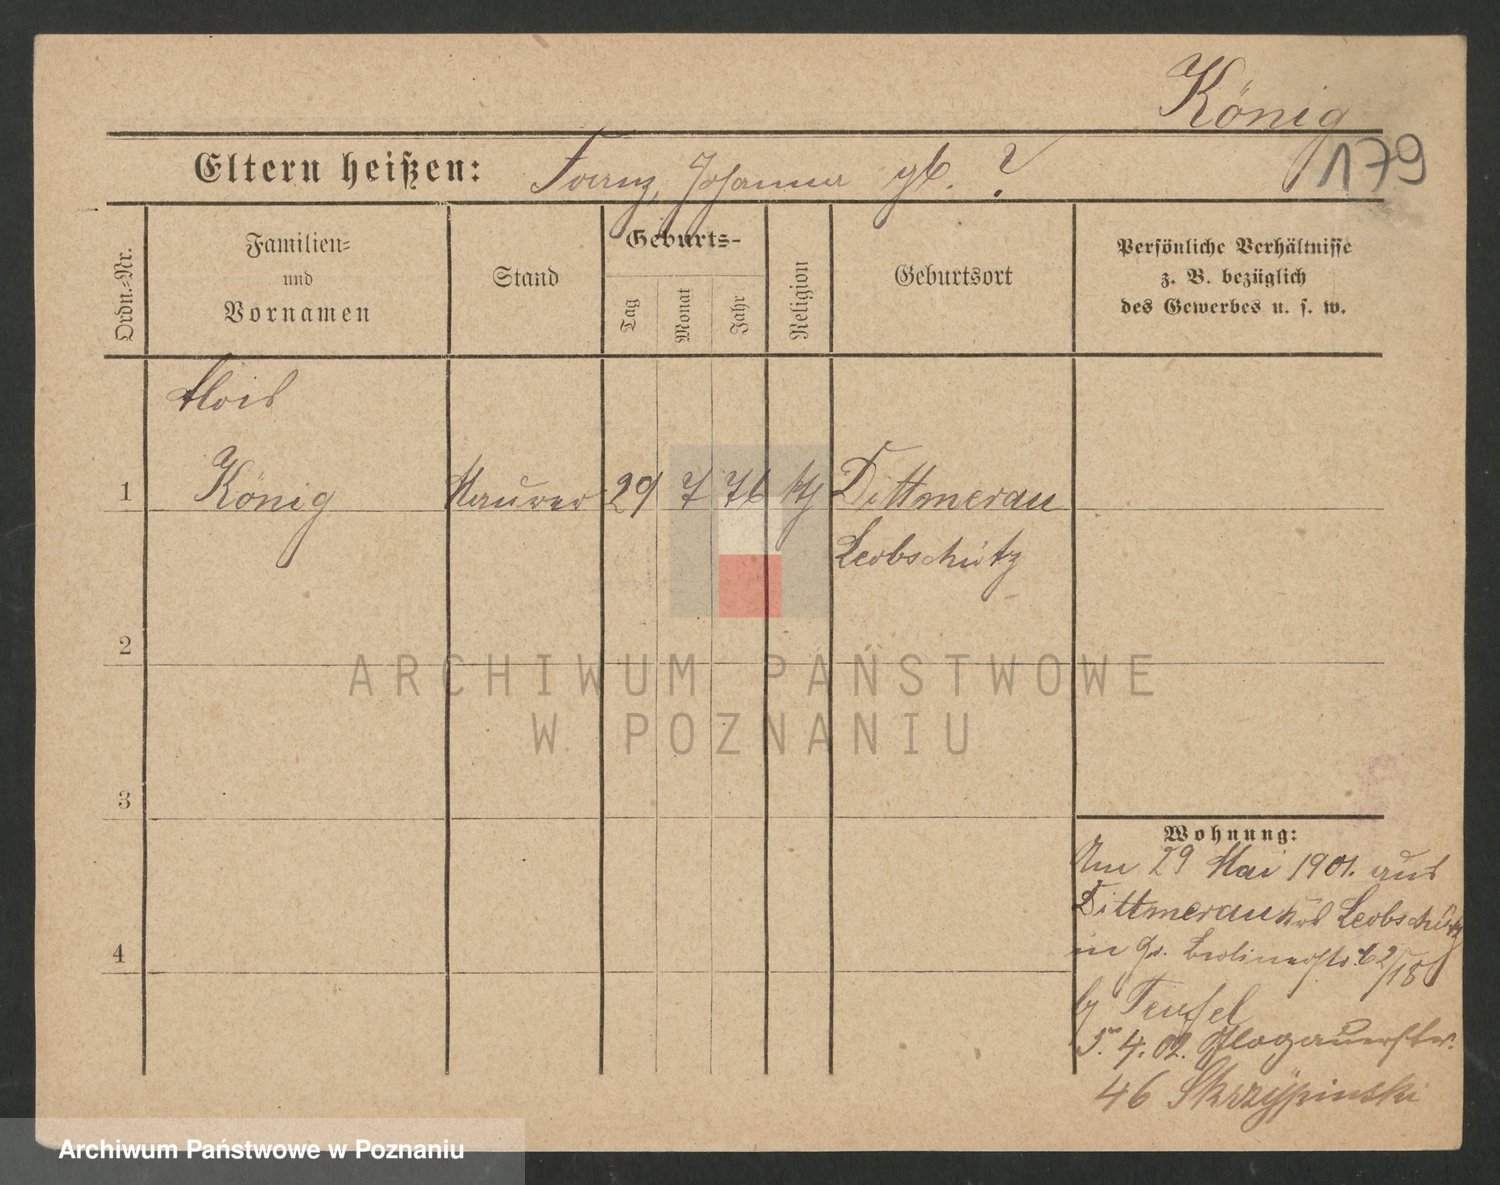 König
179
Eltern heißen: Franz, Johanna gb. ?
Ordn.=Nr.
Familien=
und
Vornamen
Stand
Geburts=
Tag
Monat
Jahr
Religion
Geburtsort
Persönliche Verhältnisse
z. B. bezüglich
des Gewerbes u. s. w.
Alois
1 König Maurer 29 7 76 kth Dittmerau
Leobschütz
2
ARCHIWUM PAŃSTWOWE
W POZNANIU
3
Wohnung:
Am 29 Mai 1901. aus
Dittmerau Krs Leobschütz
in Gr. Berlinerstr. 62/18
by Teufel
5. 4. 02. Glogauerstr.
46 Skrzypinski
4
Archiwum Państwowe w Poznaniu